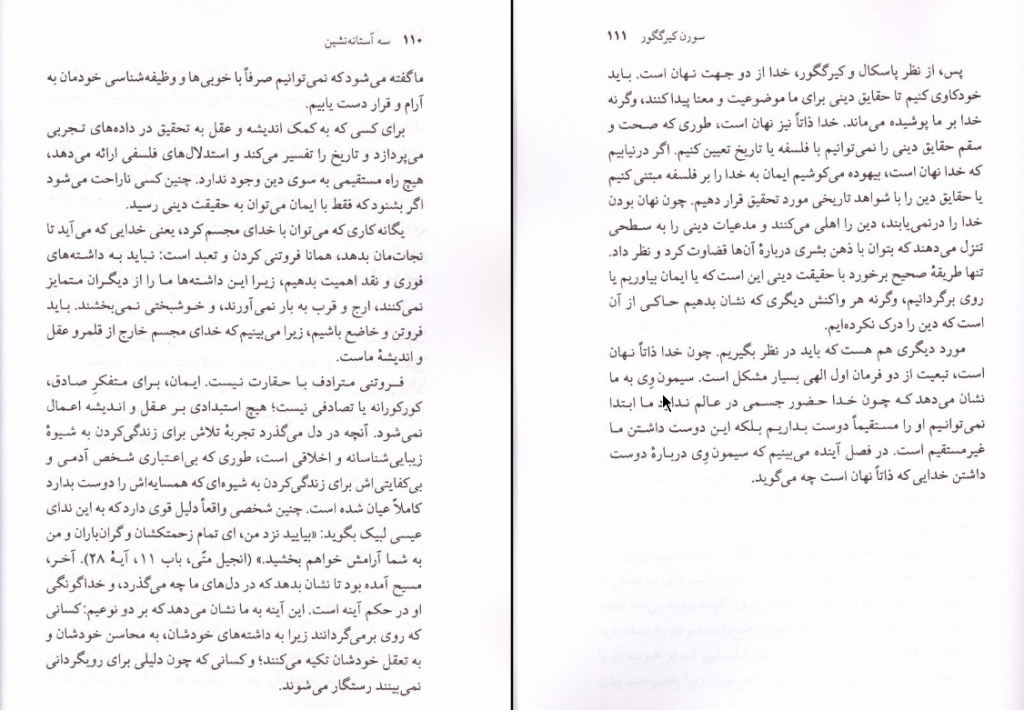 ۱۱۰ سه آستانه‌نشین
ما گفته می‌شود که نمی‌توانیم صرفاً با خوبی‌ها و وظیفه‌شناسی خودمان به
آرام و قرار دست یابیم.
برای کسی که به کمک اندیشه و عقل به تحقیق در داده‌های تجربی
می‌پردازد و تاریخ را تفسیر می‌کند و استدلال‌های فلسفی ارائه می‌دهد،
هیچ راه مستقیمی به سوی دین وجود ندارد. چنین کسی ناراحت می‌شود
اگر بشنود که فقط با ایمان می‌توان به حقیقت دینی رسید.
یگانه کاری که می‌توان با خدای مجسم کرد، یعنی خدایی که می‌آید تا
نجات‌مان بدهد، همانا فروتنی کردن و تعبد است: نباید به داشته‌های
فوری و نقد اهمیت بدهیم، زیرا این داشته‌ها ما را از دیگران متمایز
نمی‌کنند، ارج و قرب به بار نمی‌آورند، و خوشبختی نمی‌بخشند. باید
فروتن و خاضع باشیم، زیرا می‌بینیم که خدای مجسم خارج از قلمرو عقل
و اندیشهٔ ماست.
فروتنی مترادف با حقارت نیست. ایمان، برای متفکرِ صادق،
کورکورانه یا تصادفی نیست؛ هیچ استبدادی بر عقل و اندیشه اعمال
نمی‌شود. آنچه در دل می‌گذرد تجربهٔ تلاش برای زندگی‌کردن به شیوهٔ
زیبایی‌شناسانه و اخلاقی است، طوری که بی‌اعتباری شخص آدمی و
بی‌کفایتی‌اش برای زندگی‌کردن به شیوه‌ای که همسایه‌اش را دوست بدارد
کاملاً عیان شده است. چنین شخصی واقعاً دلیل قوی دارد که به این ندای
عیسی لبیک بگوید: «بیایید نزد من، ای تمام زحمتکشان و گران‌باران و من
به شما آرامش خواهم بخشید.» (انجیل متّی، باب ۱۱، آیهٔ ۲۸). آخر،
مسیح آمده بود تا نشان بدهد که در دل‌های ما چه می‌گذرد، و خداگونگی
او در حکم آینه است. این آینه به ما نشان می‌دهد که بر دو نوعیم: کسانی
که روی برمی‌گردانند زیرا به داشته‌های خودشان، به محاسن خودشان و
به تعقل خودشان تکیه می‌کنند؛ و کسانی که چون دلیلی برای رویگردانی
نمی‌بینند رستگار می‌شوند.
سورن کیرگگور ۱۱۱
پس، از نظر پاسکال و کیرگگور، خدا از دو جهت نهان است. باید
خودکاوی کنیم تا حقایق دینی برای ما موضوعیت و معنا پیدا کنند، وگرنه
خدا بر ما پوشیده می‌ماند. خدا ذاتاً نیز نهان است، طوری که صحت و
سقم حقایق دینی را نمی‌توانیم با فلسفه یا تاریخ تعیین کنیم. اگر درنیابیم
که خدا نهان است، بیهوده می‌کوشیم ایمان به خدا را بر فلسفه مبتنی کنیم
یا حقایق دین را با شواهد تاریخی مورد تحقیق قرار دهیم. چون نهان بودن
خدا را درنمی‌یابند، دین را اهلی می‌کنند و مدعیات دینی را به سطحی
تنزل می‌دهند که بتوان با ذهن بشری دربارهٔ آن‌ها قضاوت کرد و نظر داد.
تنها طریقهٔ صحیح برخورد با حقیقت دینی این است که یا ایمان بیاوریم یا
روی برگردانیم، وگرنه هر واکنش دیگری که نشان بدهیم حاکی از آن
است که دین را درک نکرده‌ایم.
مورد دیگری هم هست که باید در نظر بگیریم. چون خدا ذاتاً نهان
است، تبعیت از دو فرمان اول الهی بسیار مشکل است. سیمون وِی به ما
نشان می‌دهد که چون خدا حضور جسمی در عالم ندارد ما ابتدا
نمی‌توانیم او را مستقیماً دوست بداریم بلکه این دوست داشتن ما
غیرمستقیم است. در فصل آینده می‌بینیم که سیمون وِی دربارهٔ دوست
داشتن خدایی که ذاتاً نهان است چه می‌گوید.